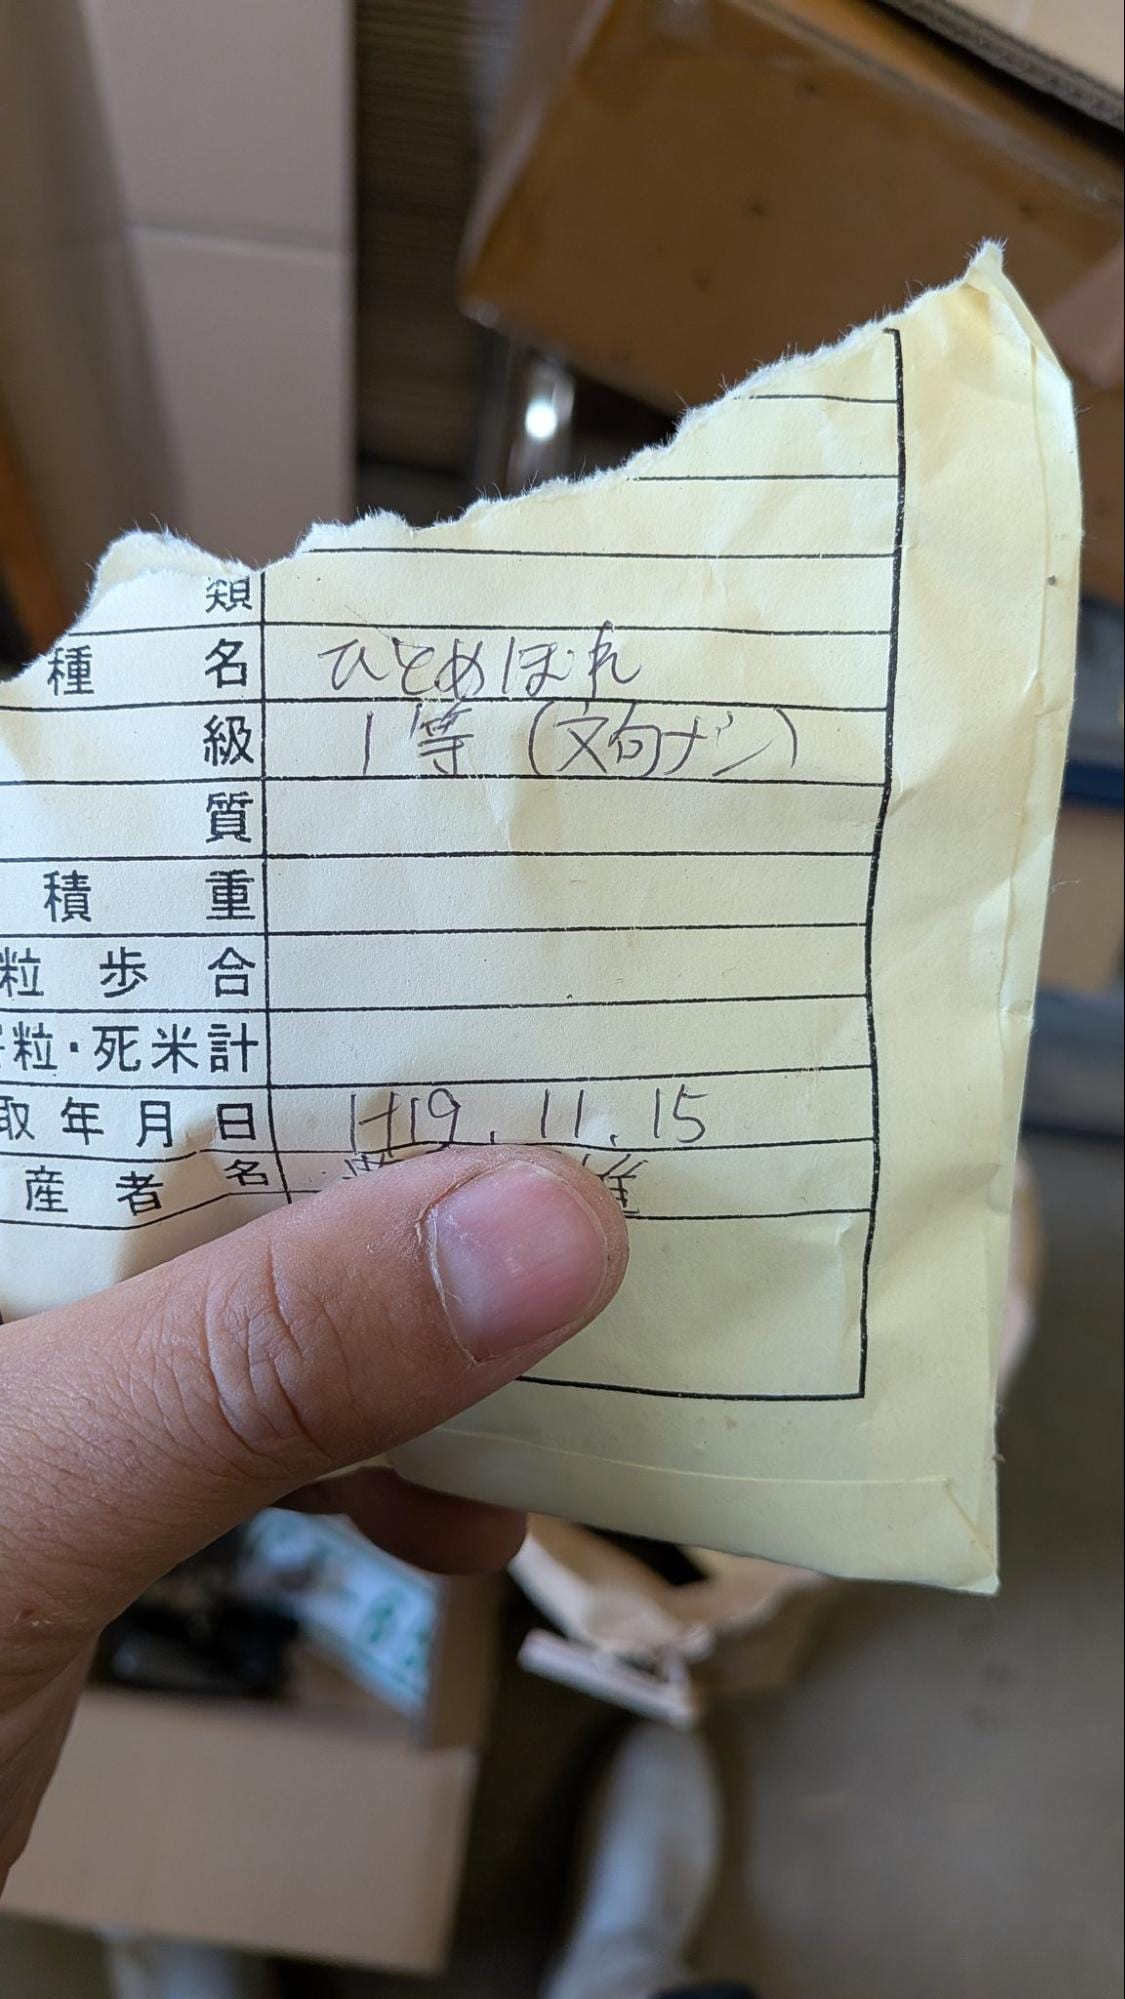 類
種 名 ひとめぼれ
級 1等 (文句ナシ)
質
積 重
粒 歩 合
粒・死米計
取年月日 H19.11.15
産者名